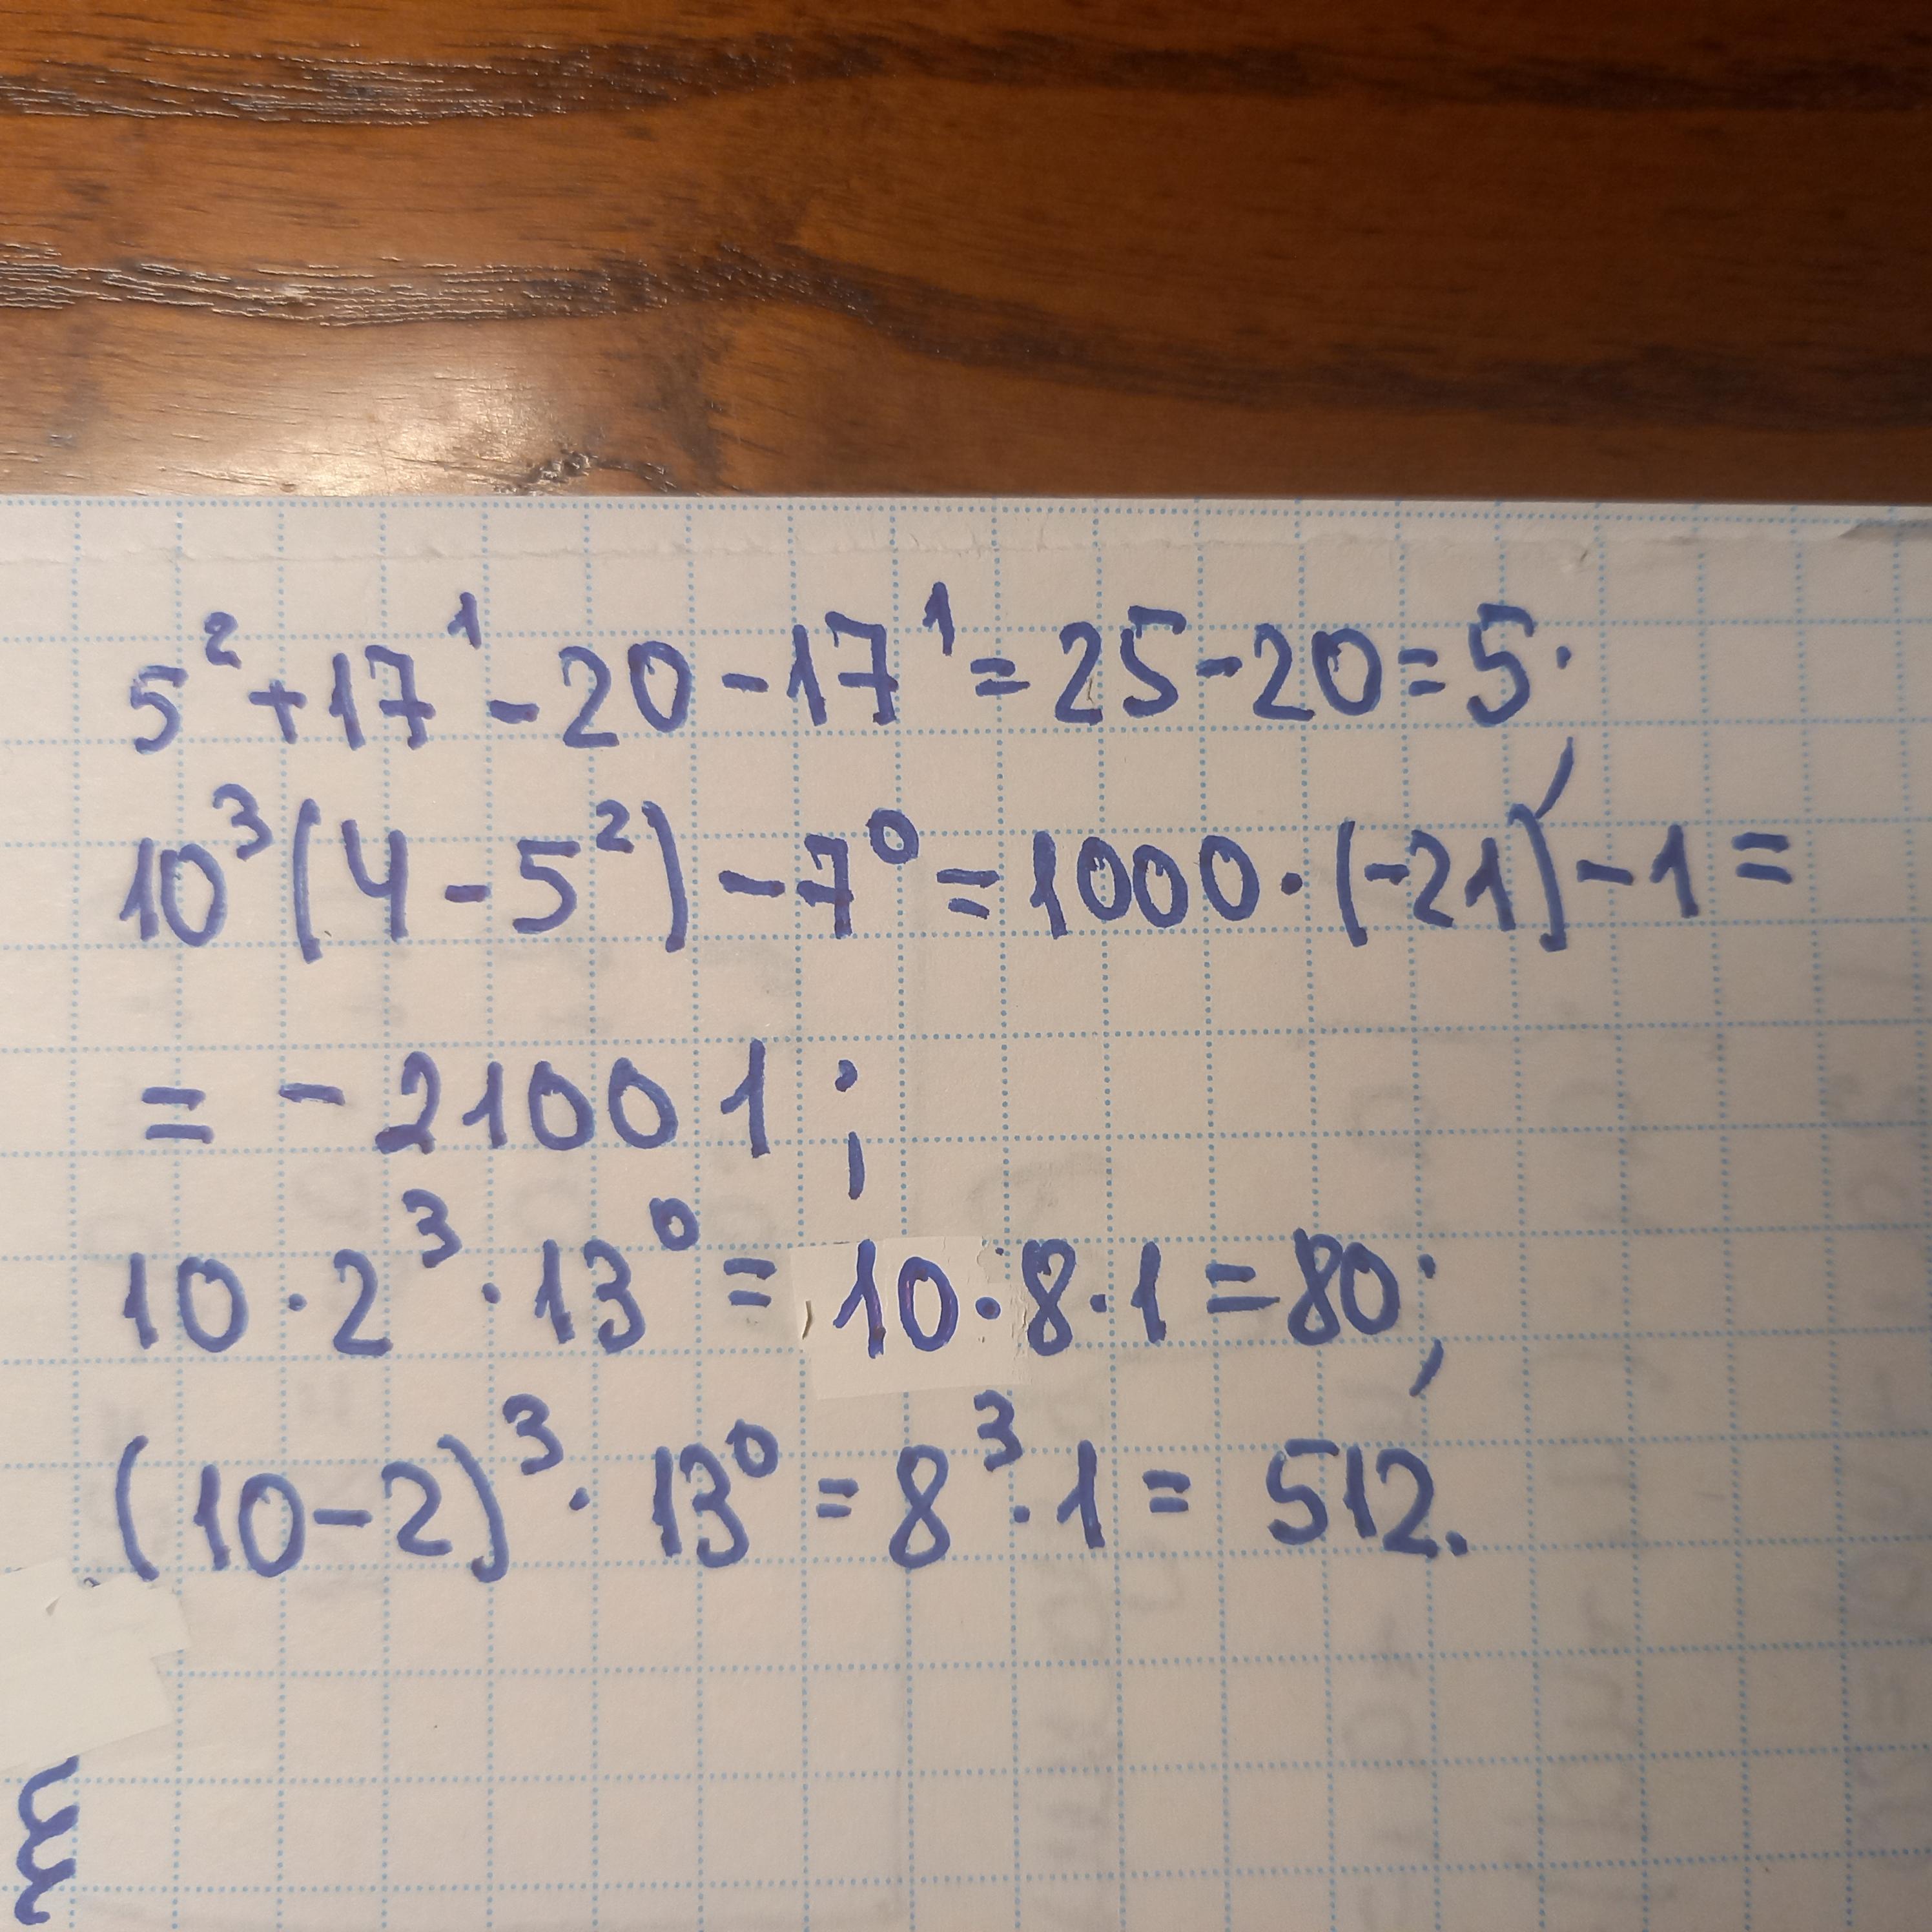 5² + 17¹ - 20 - 17¹ = 25 - 20 = 5;
10³(4 - 5²) - 7⁰ = 1000 · (-21) - 1 =
= - 21001;
10 · 2³ · 13⁰ = 10 · 8 · 1 = 80;
(10 - 2)³ · 13⁰ = 8³ · 1 = 512.